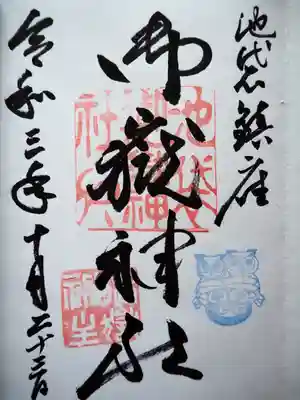 池袋鎮座
御嶽神社
令和三年十月二十三日